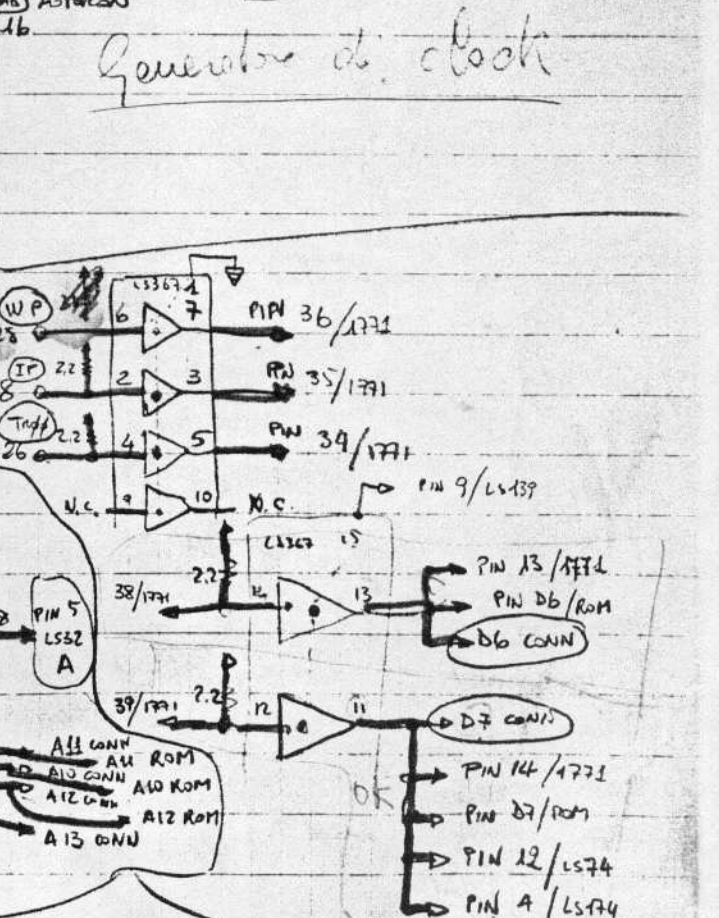 16
Generatore di clock
LS367 1
WP 6 7 PIN 36/1771
IP 2.2 2 3 PIN 35/1771
26 2.2 4 5 PIN 34/1771
N.C. 9 10 N.C.
PIN 9/LS139
LS367 15
38/1771 2.2 14 13
PIN 13/1771
PIN D6/ROM
D6 CONN
PIN 5
LS32
A
39/1771 2.2 12 11
D7 CONN
PIN 14/1771
PIN D7/ROM
PIN 12/LS74
PIN 4/LS174
OK
A11 CONN
A11 ROM
A10 CONN
A10 ROM
A12 CONN
A12 ROM
A13 CONN